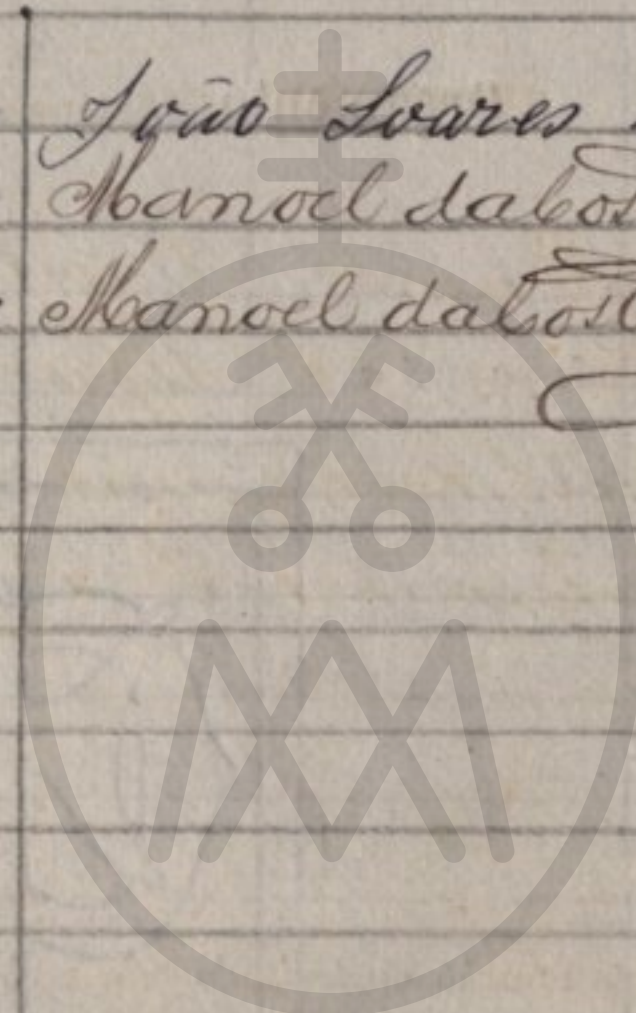 João Soares
Manoel da Cos
Manoel da Cost